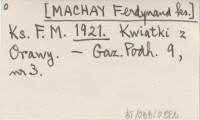 [MACHAY Ferdynand ks.]
Ks. F. M. 1921. Kwiatki z
Orawy. — Gaz. Podh. 9,
nr 3.